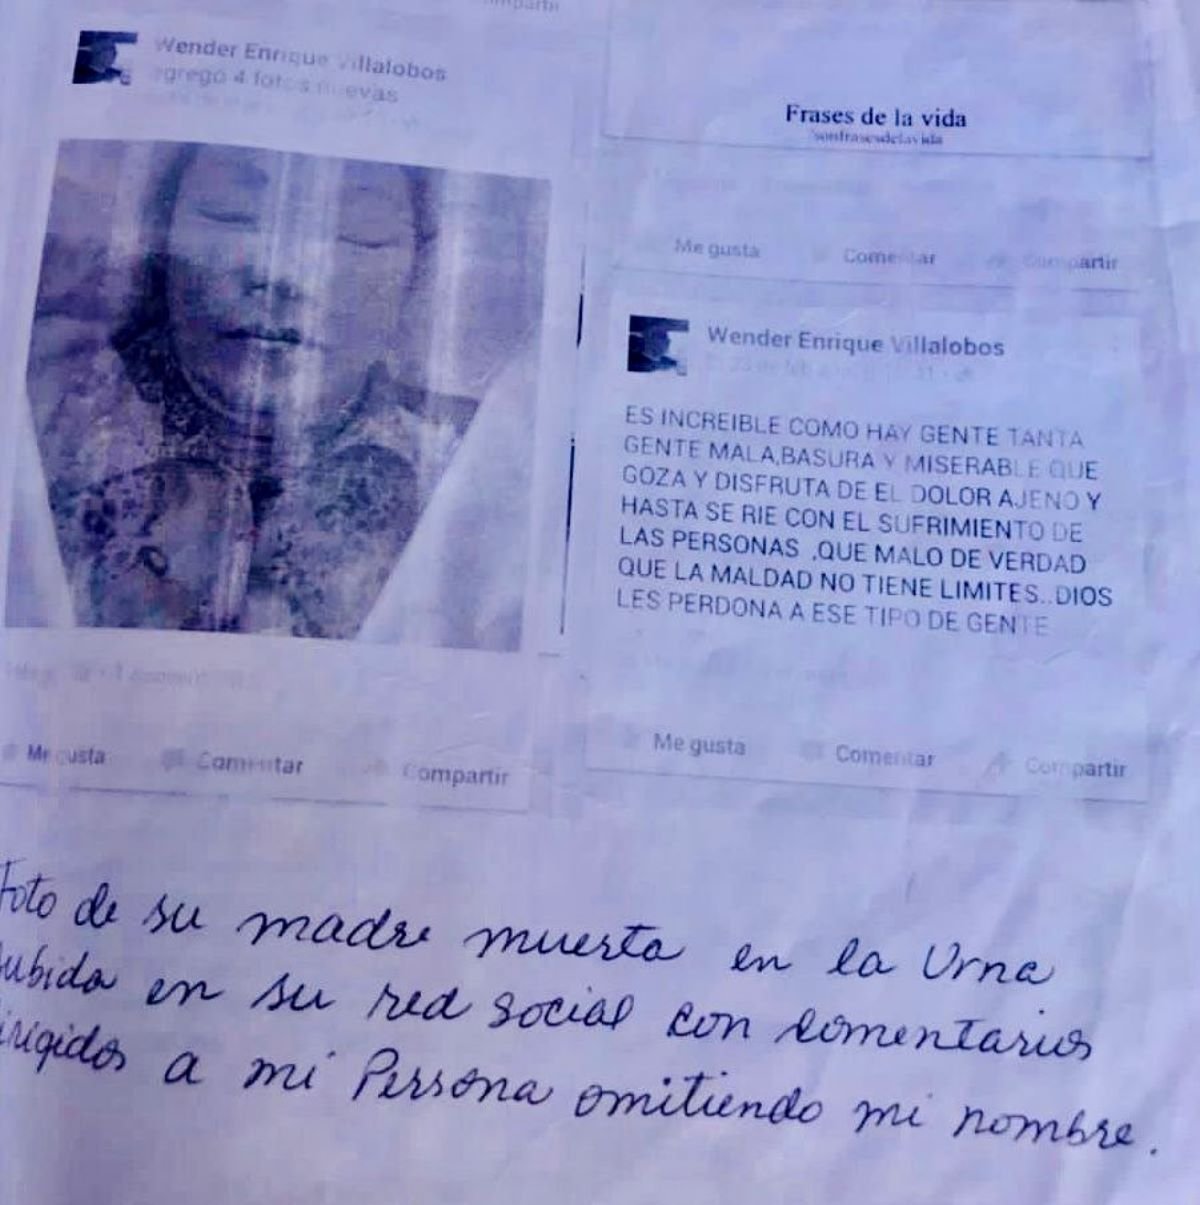 Wender Enrique Villalobos
agregó 4 fotos nuevas
Me gusta Comentar Compartir
Frases de la vida
Me gusta Comentar Compartir
Wender Enrique Villalobos
ES INCREIBLE COMO HAY GENTE TANTA
GENTE MALA,BASURA Y MISERABLE QUE
GOZA Y DISFRUTA DE EL DOLOR AJENO Y
HASTA SE RIE CON EL SUFRIMIENTO DE
LAS PERSONAS ,QUE MALO DE VERDAD
QUE LA MALDAD NO TIENE LIMITES..DIOS
LES PERDONA A ESE TIPO DE GENTE
Me gusta Comentar Compartir
Foto de su madre muerta en la Urna
subida en su red social con comentarios
dirigidos a mi Persona omitiendo mi nombre.